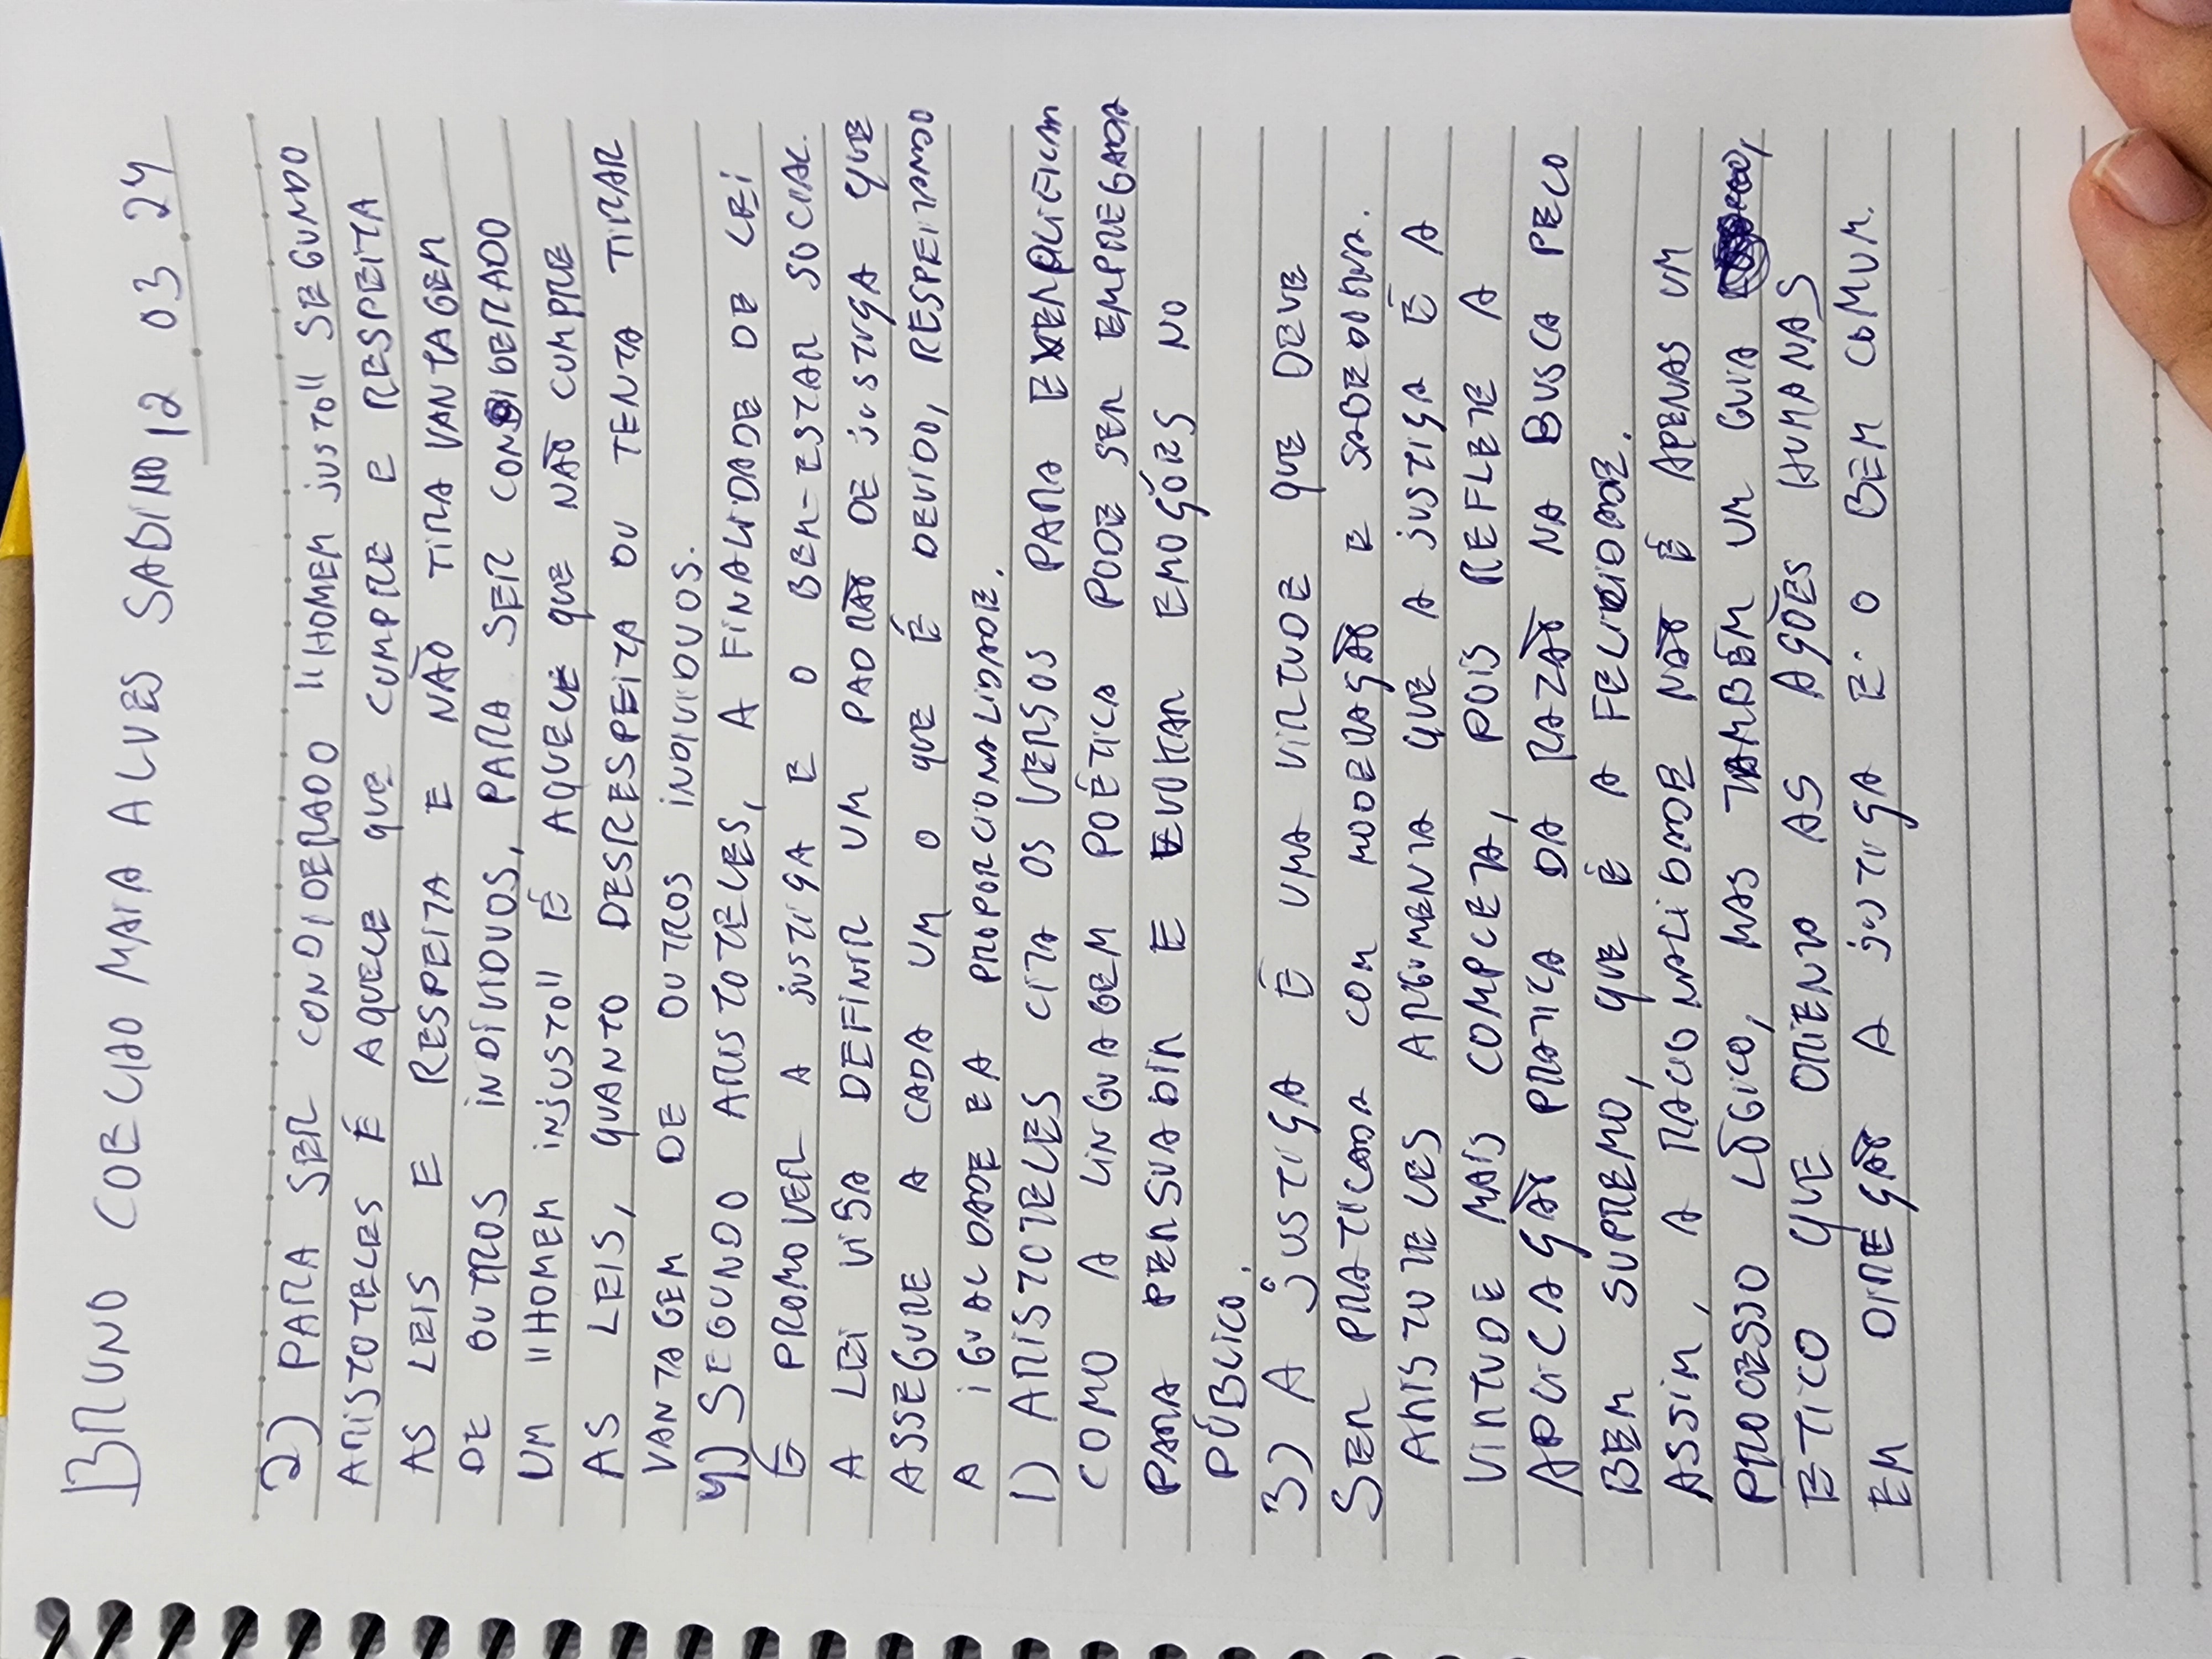 BRUNO COELHO MAIA ALVES SABINO 12 03 24
2) PARA SER CONDIDERADO "HOMEM JUSTO" SEGUNDO
ARISTOTELES É AQUELE QUE CUMPRE E RESPEITA
AS LEIS E RESPEITA E NÃO TIRA VANTAGEM
DE OUTROS INDÍVIDUOS, PARA SER CONSIDERADO
UM "HOMEM INJUSTO" É AQUELE QUE NÃO CUMPRE
AS LEIS, QUANTO DESRESPEITA OU TENTA TIRAR
VANTAGEM DE OUTROS INDIVIDUOS.
4) SEGUNDO ARISTOTELES, A FINALIDADE DE LEI
É PROMOVER A JUSTIÇA E O BEM-ESTAR SOCIAL.
A LEI VISA DEFINIR UM PADRÃO DE JUSTIÇA QUE
ASSEGURE A CADA UM O QUE É DEVIDO, RESPEITANDO
A IGUALDADE E A PROPORCIONALIDADE.
1) ARISTOTELES CITA OS VERSOS PARA EXEMPLIFICAR
COMO A LINGUAGEM POÉTICA PODE SER EMPREGADA
PARA PERSUADIR E EVOKAR EMOÇÕES NO
PÚBLICO.
3) A JUSTIÇA É UMA VIRTUDE QUE DEVE
SER PRATICADA COM MODERAÇÃO E SABEDORIA.
ARISTOTELES ARGUMENTA QUE A JUSTIÇA É A
VIRTUDE MAIS COMPLETA, POIS REFLETE A
APLICAÇÃO PRATICA DA RAZÃO NA BUSCA PELO
BEM SUPREMO, QUE É A FELICIDADE.
ASSIM, A RACIONALIDADE NÃO É APENAS UM
PROCESSO LÓGICO, MAS TAMBÉM UM GUIA
ETICO QUE ORIENTA AS AÇÕES HUMANAS
EM DIREÇÃO A JUSTIÇA E O BEM COMUM.